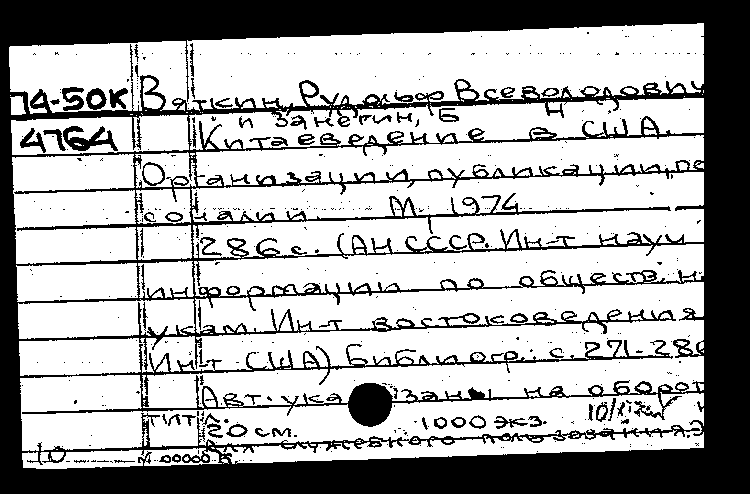 74-50К Вяткин, Рудольф Всеволодович
и Занегин, Б Н
4764 Китаеведение в США.
Организации, публикации, пе
соналии М, 1974
286 с. (АН СССР. Ин-т науч
информации по обществ. н
укам. Ин-т востоковедения
Ин-т США). Библиогр.: с. 271-286
Авт. ука заны на оборот
тит л.
20 см. 1000 экз.
Для служебного пользования.
10